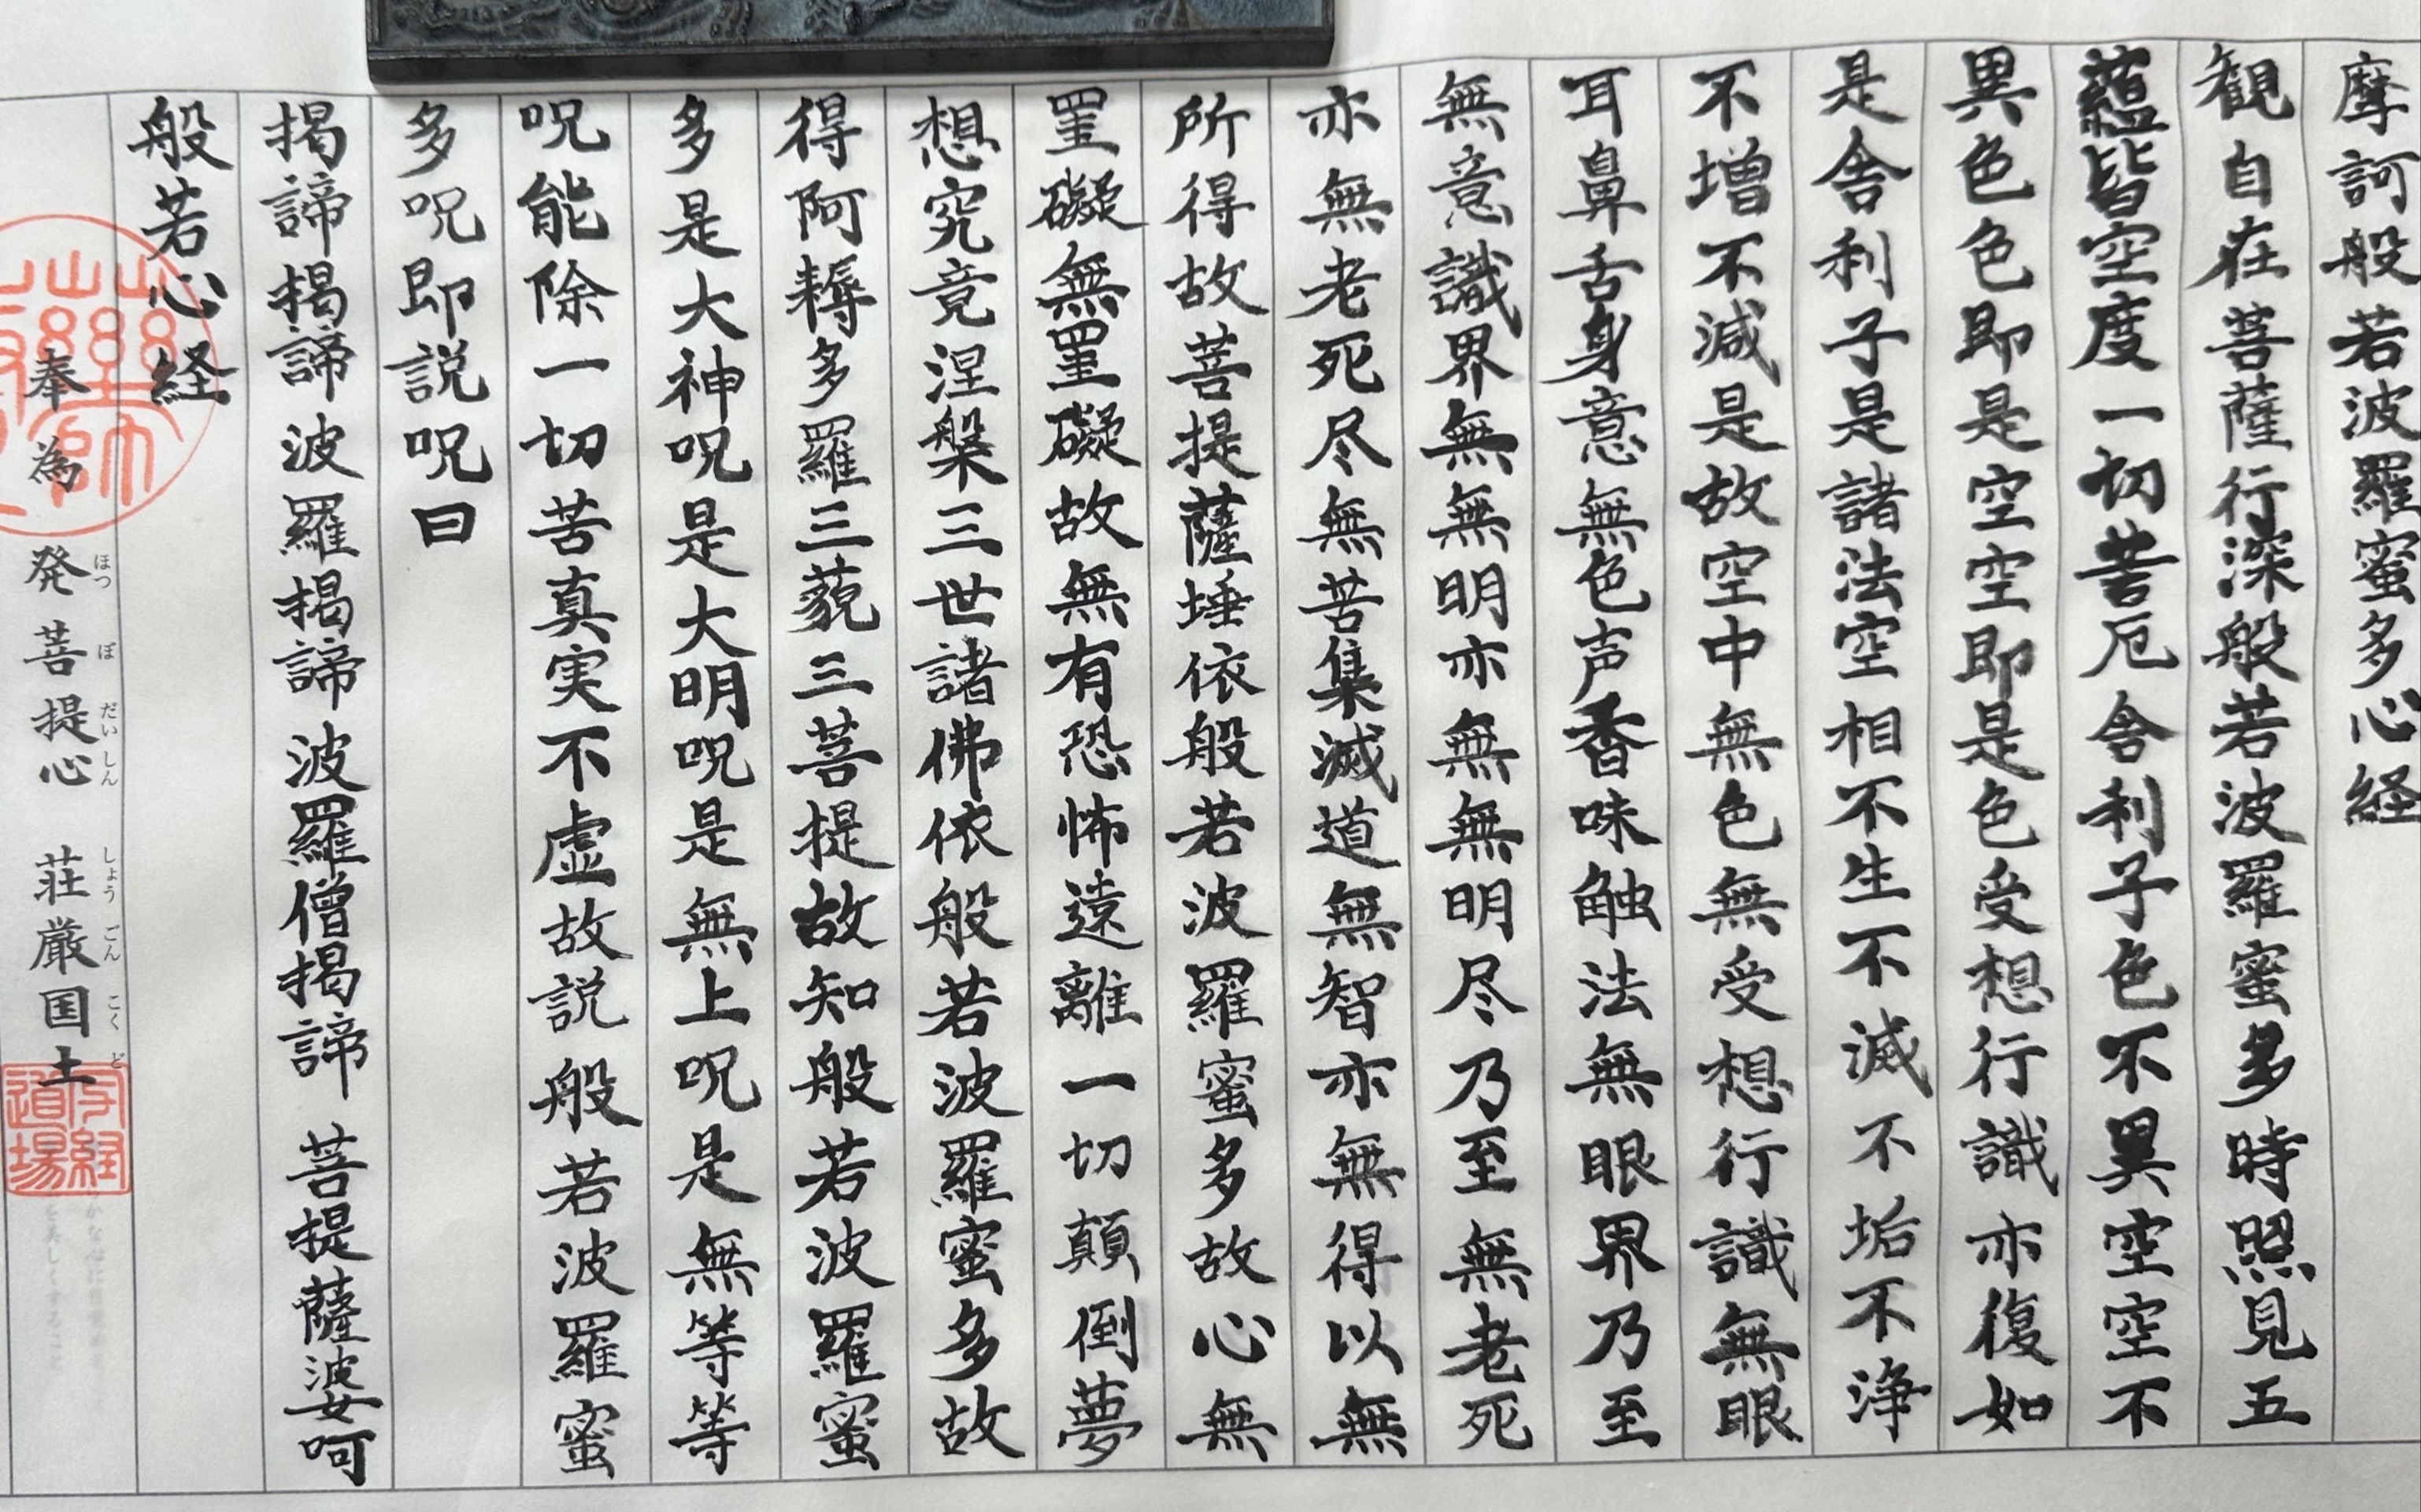 摩訶般若波羅蜜多心経
観自在菩薩行深般若波羅蜜多時照見五
蘊皆空度一切苦厄舎利子色不異空空不
異色色即是空空即是色受想行識亦復如
是舎利子是諸法空相不生不滅不垢不浄
不増不減是故空中無色無受想行識無眼
耳鼻舌身意無色声香味触法無眼界乃至
無意識界無無明亦無無明尽乃至無老死
亦無老死尽無苦集滅道無智亦無得以無
所得故菩提薩埵依般若波羅蜜多故心無
罣礙無罣礙故無有恐怖遠離一切顛倒夢
想究竟涅槃三世諸佛依般若波羅蜜多故
得阿耨多羅三藐三菩提故知般若波羅蜜
多是大神呪是大明呪是無上呪是無等等
呪能除一切苦真実不虚故説般若波羅蜜
多呪即説呪曰
揭諦揭諦波羅揭諦波羅僧揭諦 菩提薩婆呵
般若心経
奉為 発菩提心 荘厳国土
ほつ ぼ だいしん しょうごんこくど
写経
道場